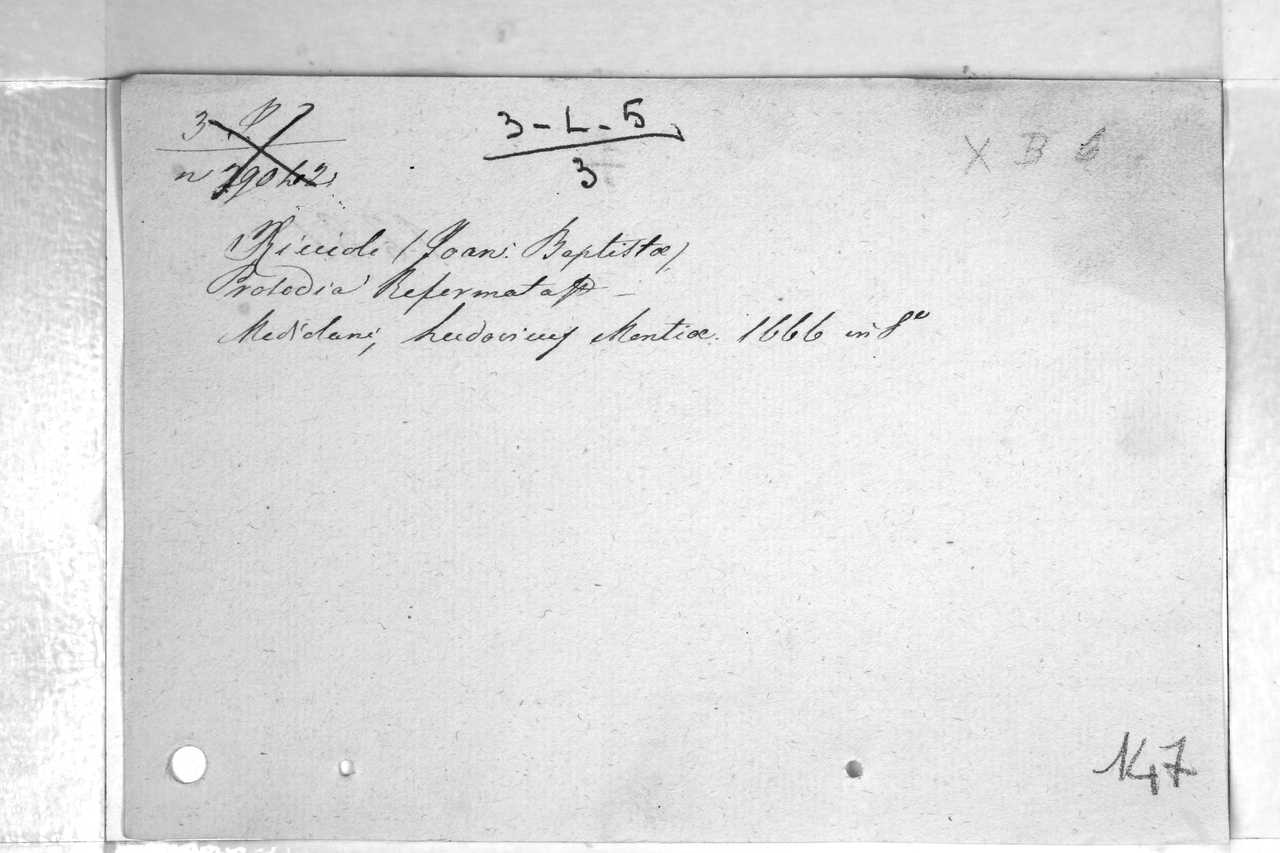 3-L-5
3
X B 6
Riccioli (Joan: Baptistæ)
Prosodia Reformata
Mediolani, Ludovicus Montiæ. 1666 in 8º